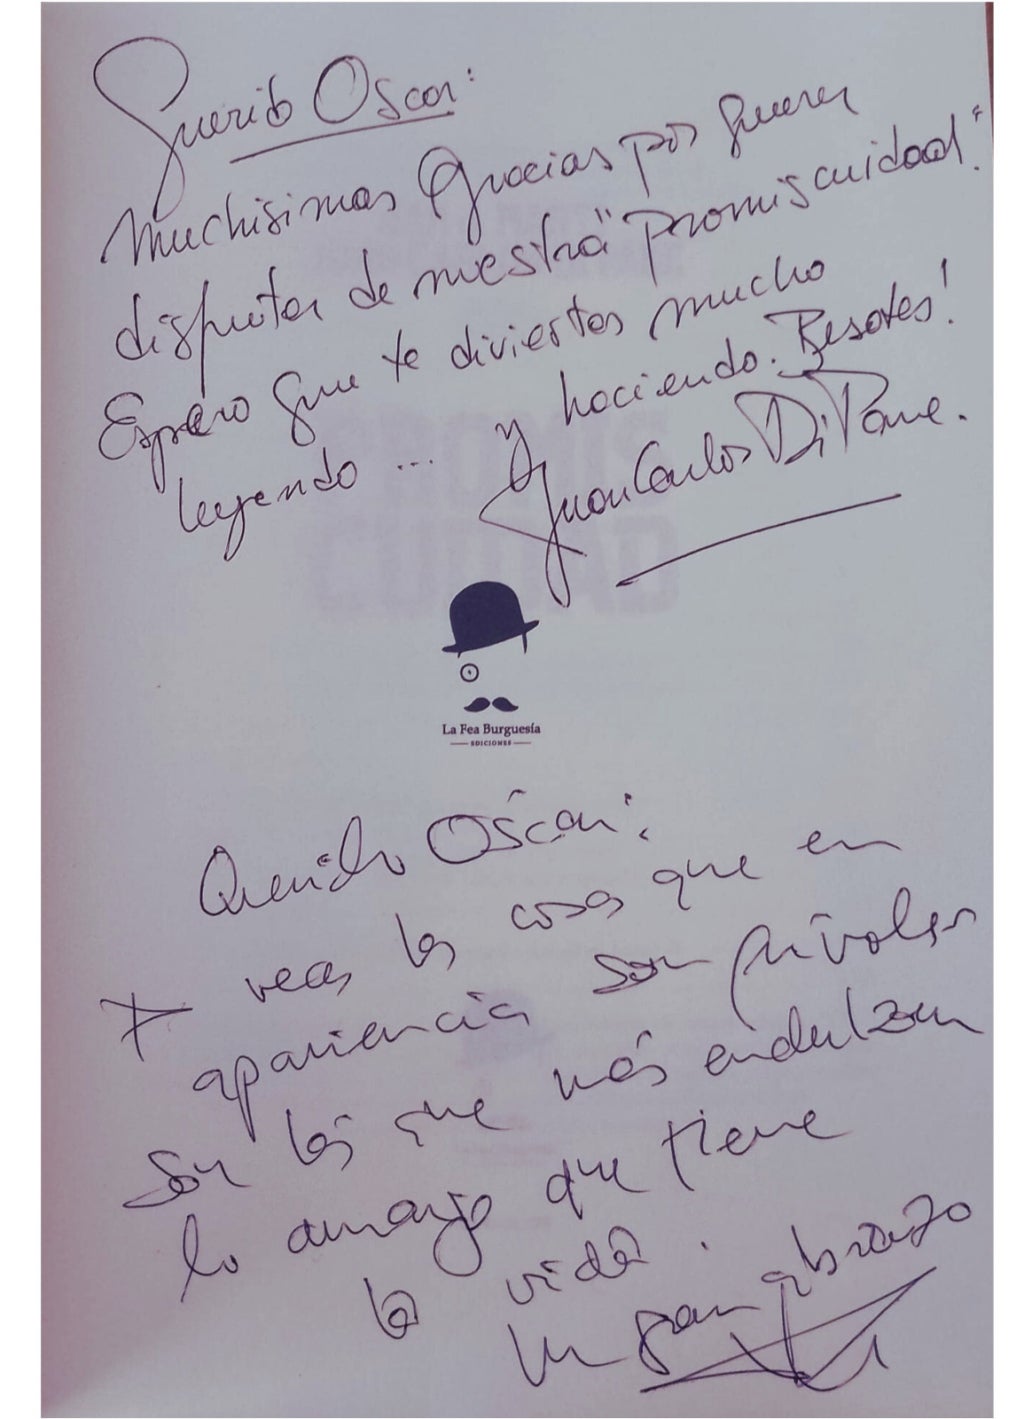 Querido Oscar:
Muchisimas Gracias por querer
disfrutar de nuestra "promiscuidad."
Espero que te diviertas mucho
leyendo... y haciendo. Besotes!
Juan Carlos Di Pane.
La Fea Burguesía
EDICIONES
Querido Oscar:
veas las cosas que en
apariencia son frívolas
son las que más endulzan
lo amargo que tiene
la vida.
Un gran abrazo